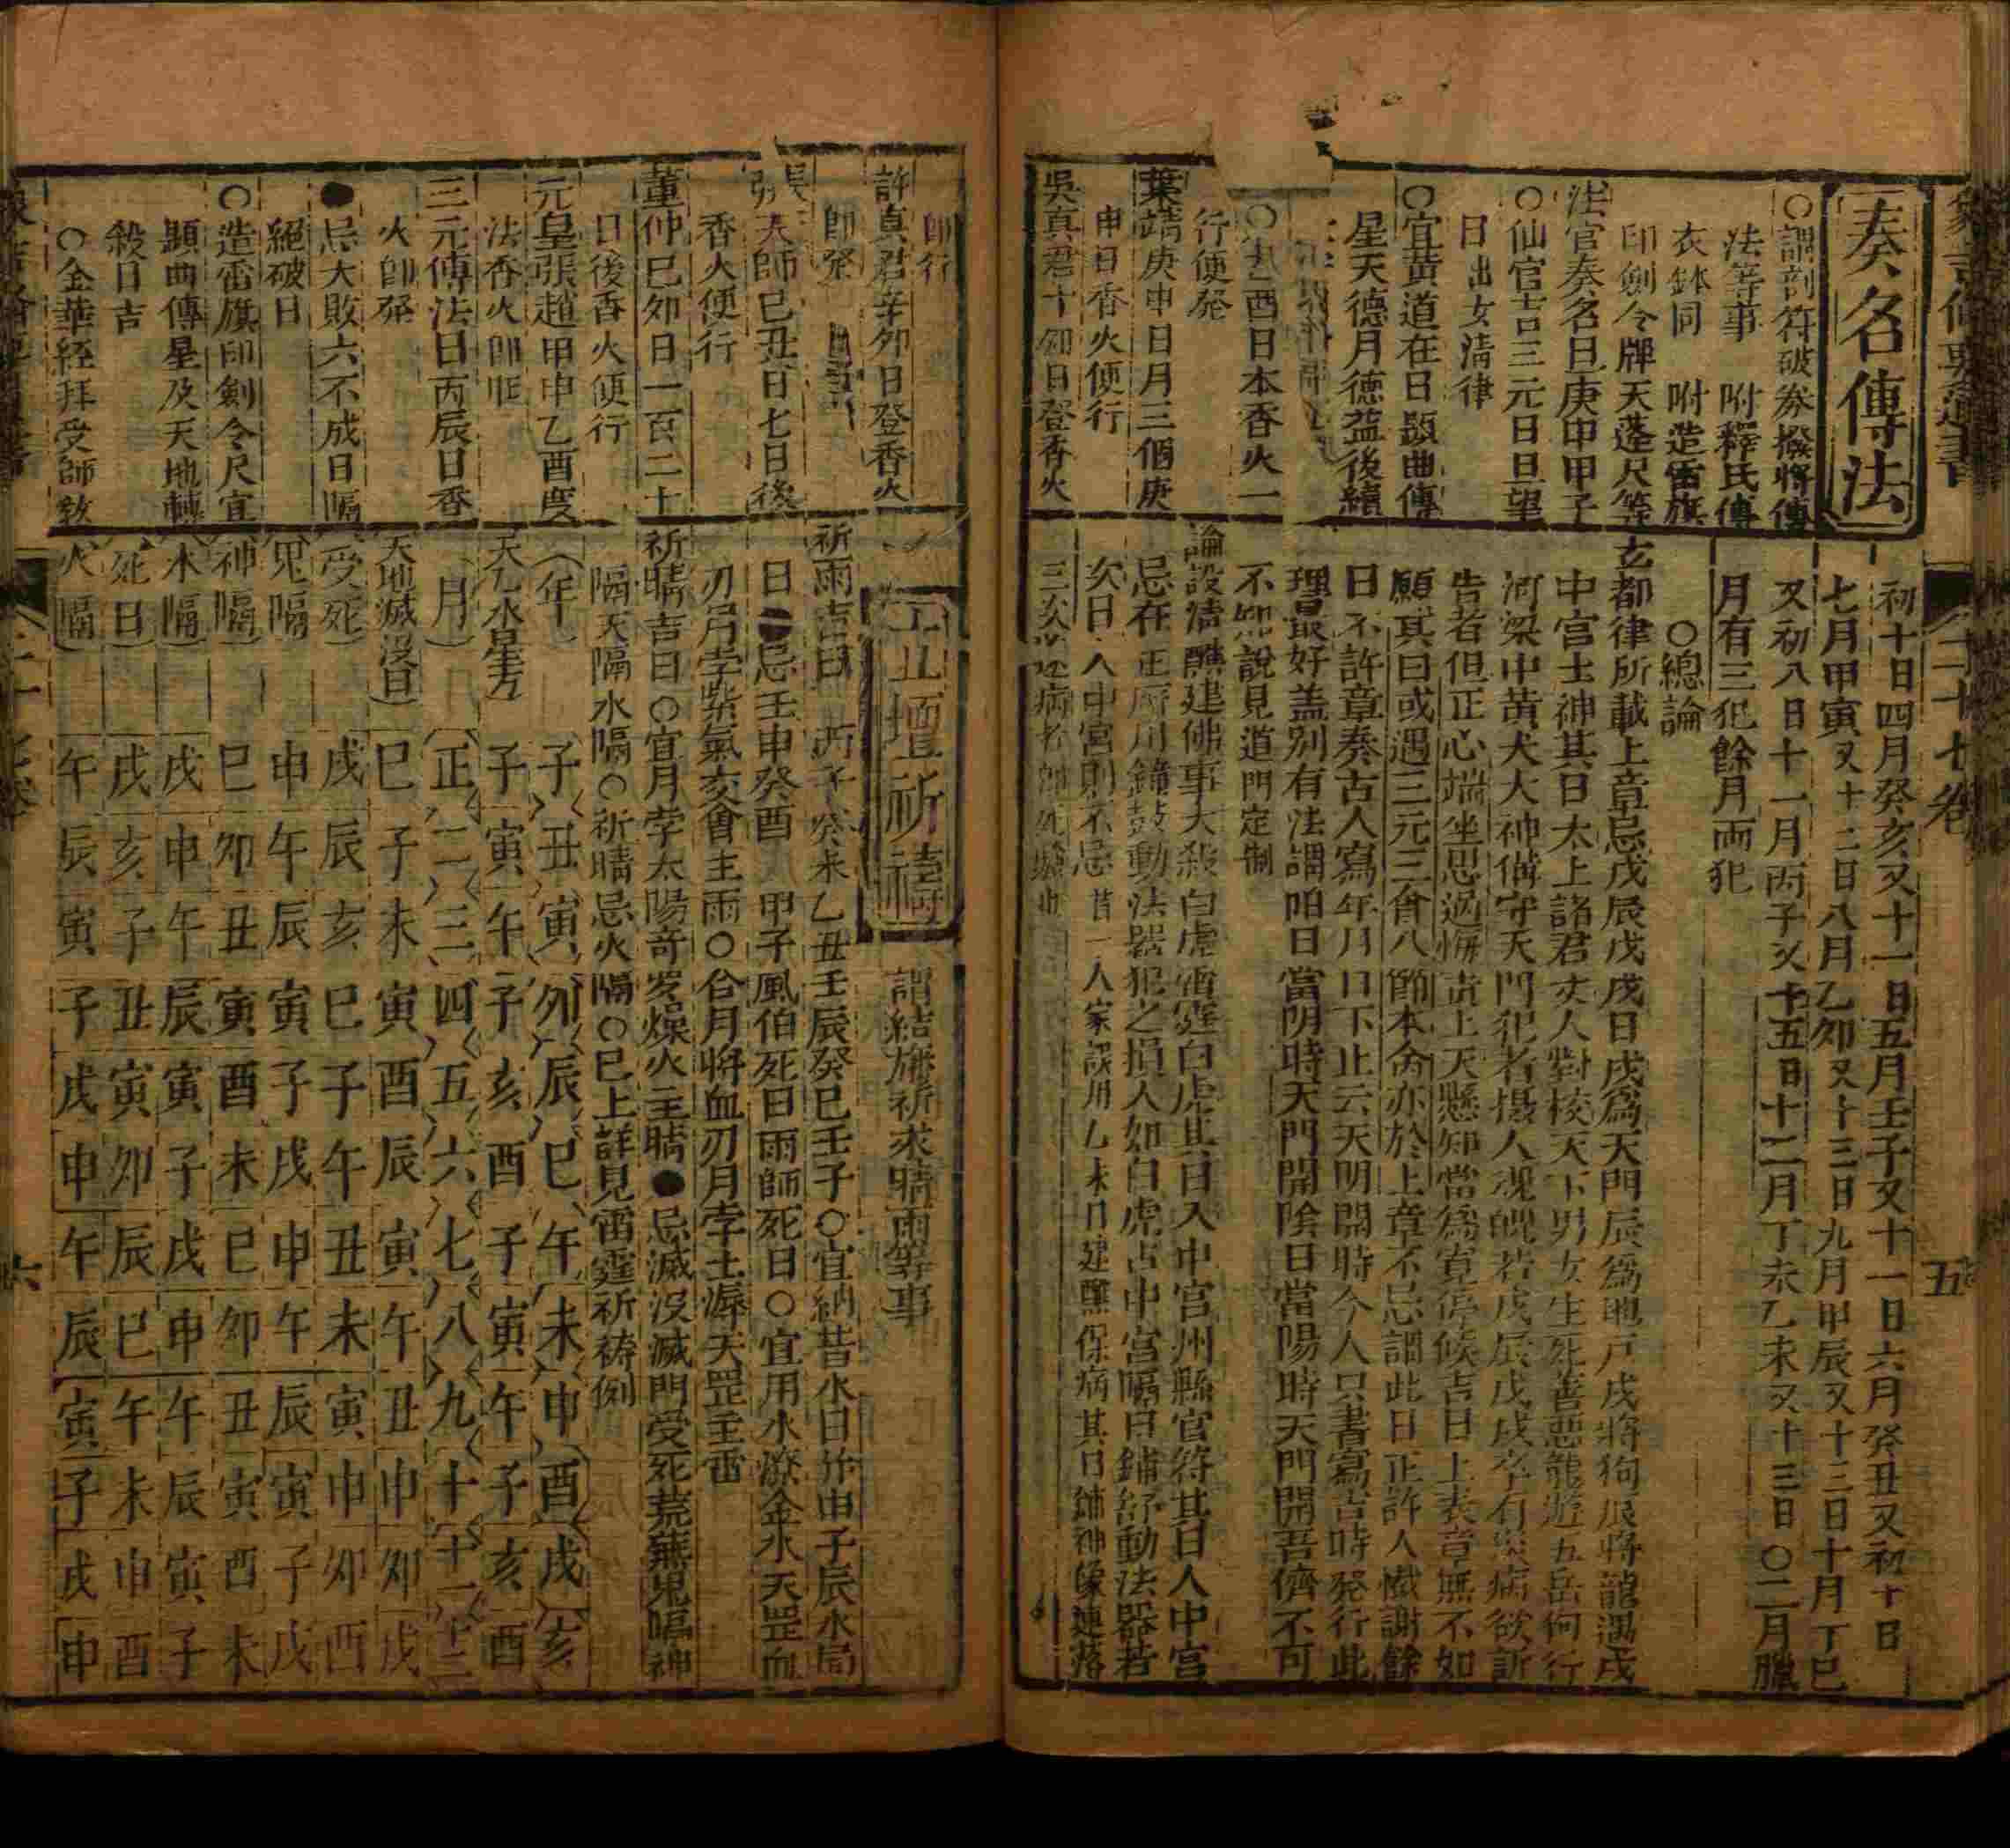 奏名傳法
○謂剖符破券撥將傳
法等事　附釋氏傳
衣鉢同　附造雷旗
印劍令牌天蓬尺等
法官奏名日庚申甲子
○仙官吉三元日旦望
日出女淸律
○宜黃道在日顕曲傳
星天德月德益後續
酉日本香火一
行便発
葉靖庚申日月三個庚
申日香火便行
吳真君十卯日登香火
初十日四月癸亥又十一日五月壬子又十一日六月癸丑又初十日
七月甲寅又十二日八月乙卯又十三日九月甲辰又十三日十月丁巳
又初八日十一月丙子又十五日十二月丁未乙未又十三日○二月臘
月有三犯餘月両犯
○總論
玄都律所載上章忌戊辰戊戌日戌爲天門辰爲地戸戌將狗辰將龍遇戌
中官土神其日太上諸君丈人對校天下男女生死善惡龍遊五岳伺行
河梁中黄犬大神俻守天門犯者摄人魂魄若戊辰戊戌卒有患病欲訴
告者但正心端坐思過悔責上天懸知當爲寛停候吉日上表章無不如
願其日或遇三元三會八節本命亦於上章不忌謂此日正許人懺謝餘
日不許章奏古人寫年月日下止云天明開時今人只書寫吉時発行此
理最好盖別有法謂咱日當阴時天門開陰日當陽時天門開吾儕不可
不知說見道門定制
論設淸醮建佛事大殺白虎雷霆白虎其日入中宮州縣官符其日入中宮
忌在正廳川鐘鼓動法器犯之損人如白虎占中宮隔日鋪舒動法器若
次日入中宮則不忌昔一人家誤用乙未日建醮保病其日鋪神像連落
三次
五
師行
許真君辛卯日登香火
師発
張天師巳丑日七日後
香火便行
董仲巳卯日一百二十
日後香火便行
元皇張趙甲申乙酉度
法香火師旺
三元傳法日丙辰日香
火師発
●忌大敗六不成日隔
絕破日
○造雷旗印劍令尺宜
顕曲傳星及天地轉
殺日吉
○金華経拜受師敎
壇祈禱
謂結旛祈求晴雨等事
祈雨吉日　丙子癸未乙丑壬辰癸巳壬子○宜納昔水日作申子辰水局
日●忌壬申癸酉　甲子風伯死日雨師死日○宜用水潦金水天罡血
刃月孛紫氣交會主雨○合月將血刃月孛土㴞天罡主雷
祈晴吉日○宜月孛太陽奇罗燥火主晴●忌滅没滅門受死荒蕪鬼隔神
隔天隔水隔○祈晴忌火隔○巳上詳見雷霆祈祷例
年　子　丑　寅　卯　辰　巳　午　未　申　酉　戌　亥
天乙水星方　子　寅　午　子　亥　酉　子　寅　午　子　亥　酉
月　正　二　三　四　五　六　七　八　九　十　十一　十二
天地滅没日　巳　子　未　寅　酉　辰　寅　午　丑　申　卯　戌
受死　戌　辰　亥　巳　子　午　丑　未　寅　申　卯　酉
鬼隔　申　午　辰　寅　子　戌　申　午　辰　寅　子　戌
神隔　巳　卯　丑　寅　酉　未　巳　卯　丑　寅　酉　未
水隔　戌　申　午　辰　寅　子　戌　申　午　辰　寅　子
死日　戌　亥　子　丑　寅　卯　辰　巳　午　未　申　酉
火隔　午　辰　寅　子　戌　申　午　辰　寅　子　戌　申
六